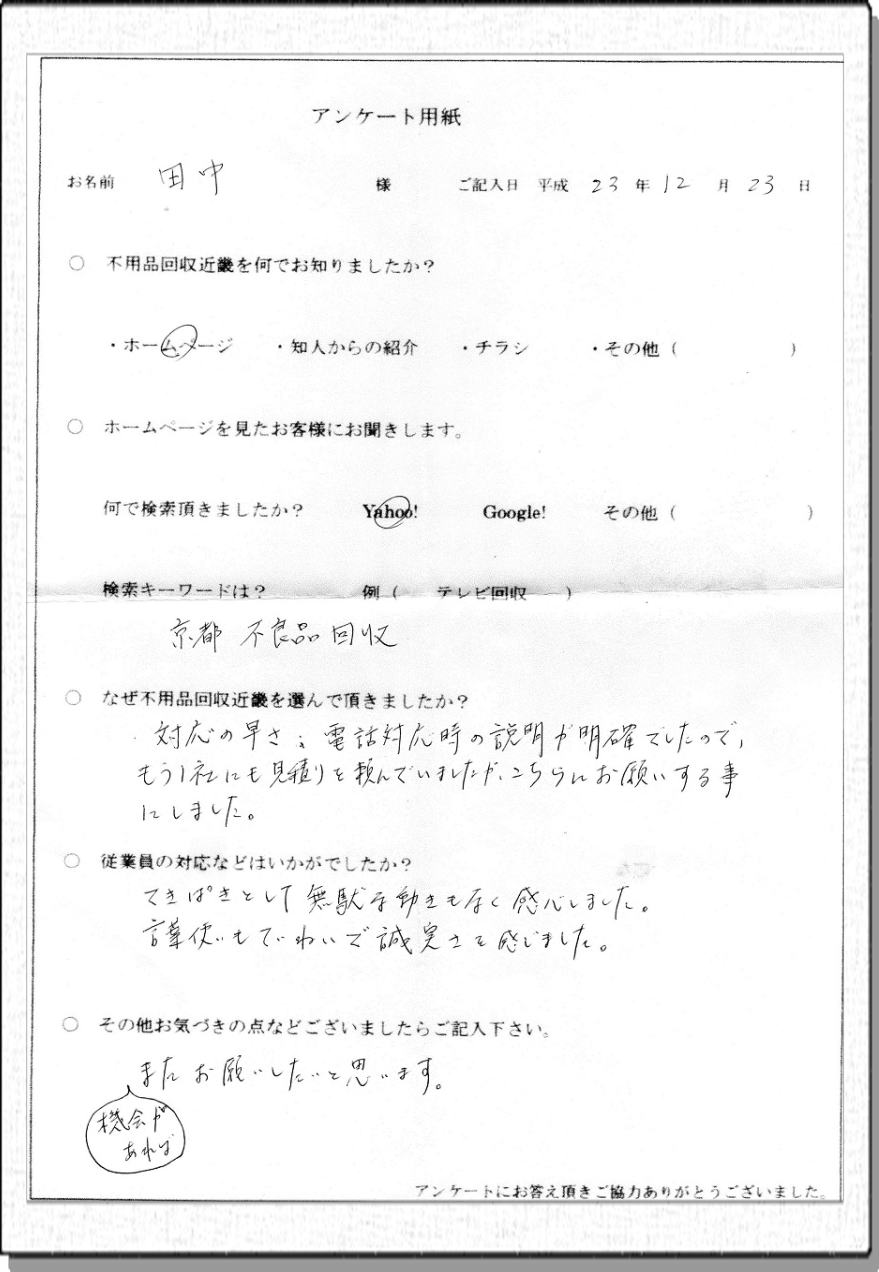 アンケート用紙
お名前 田中 様 ご記入日 平成 23 年 12 月 23 日
○ 不用品回収近畿を何でお知りましたか？
・ホームページ ・知人からの紹介 ・チラシ ・その他（ ）
○ ホームページを見たお客様にお聞きします。
何で検索頂きましたか？ Yahoo! Google! その他（ ）
検索キーワードは？ 例（ テレビ回収 ）
京都 不良品回収
○ なぜ不用品回収近畿を選んで頂きましたか？
対応の早さ、電話対応時の説明が明確でしたので、
もう1社にも見積りを頼んでいましたが、こちらにお願いする事
にしました。
○ 従業員の対応などはいかがでしたか？
てきぱきとして無駄な動きもなく感心しました。
言葉使いもていねいで誠実さを感じました。
○ その他お気づきの点などございましたらご記入下さい。
またお願いしたいと思います。
機会が
あれば
アンケートにお答え頂きご協力ありがとうございました。